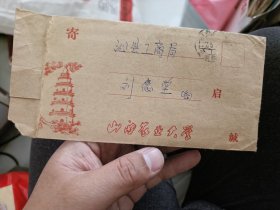 寄
沁县工商局
刘志
启
山西农业大学
缄